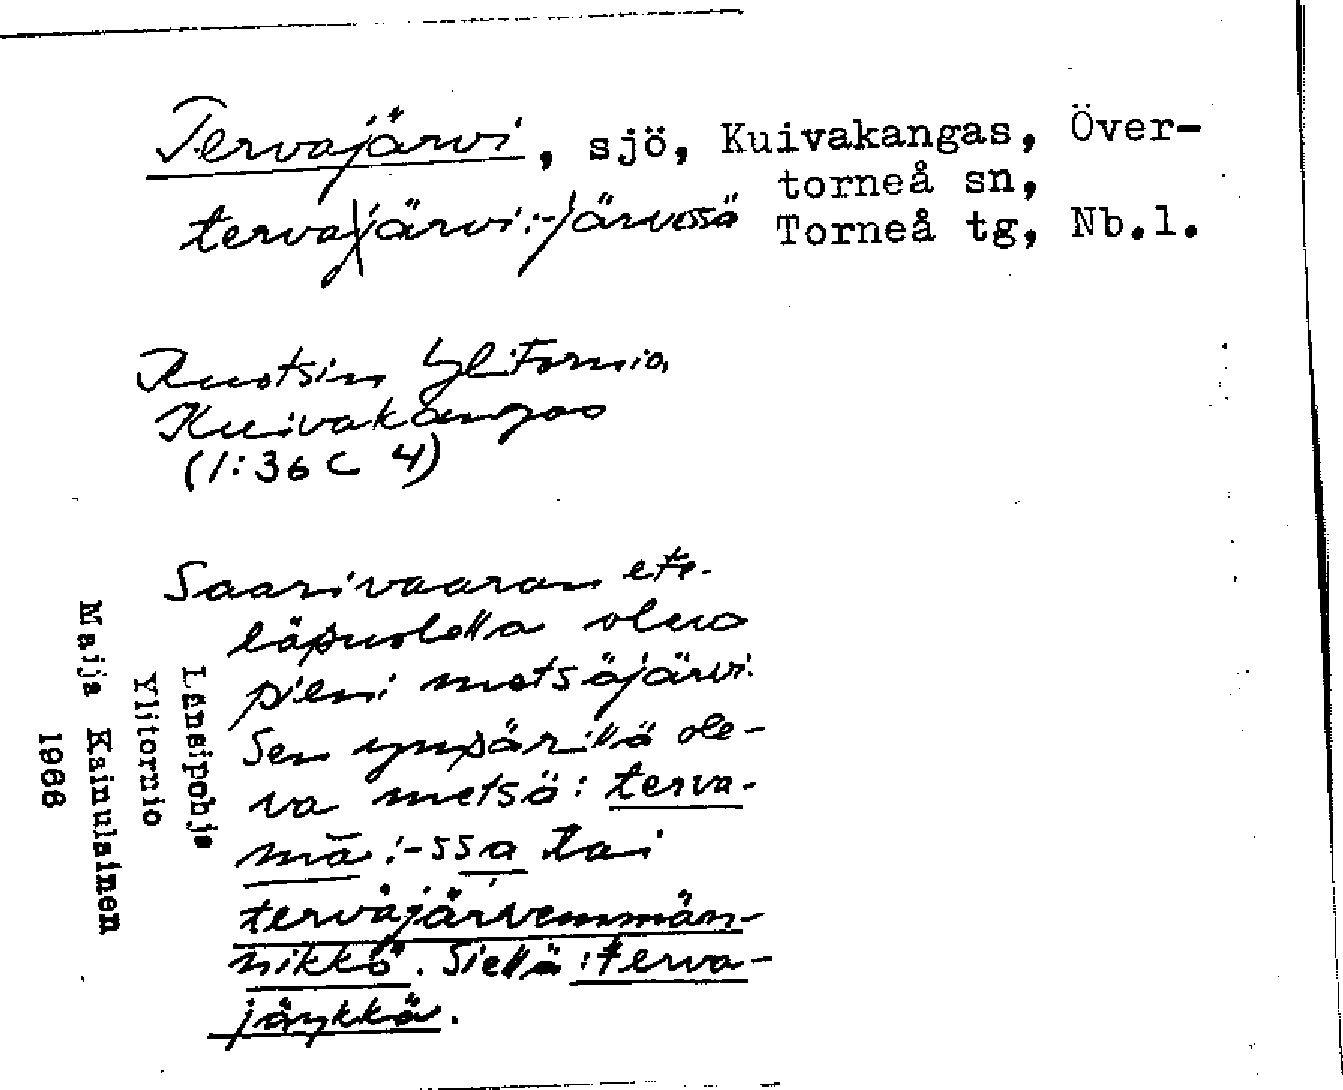 Tervajärvi, sjö, Kuivakangas, Över-
torneå sn,
tervajärvi:-järvessä Torneå tg, Nb.l.
Ruotsin Ylitornio,
Kuivakangas
(1:36 C 4)
Saarivaaran ete-
läpuolella oleva
pieni metsäjärvi.
Sen ympärillä ole-
va metsä: terva-
mā:-ssa tai
tervajärvemmän-
nikkö. Siellä: terva-
jäykkä.
Länsipohja
Ylitornio
Maija Kainulainen
1966